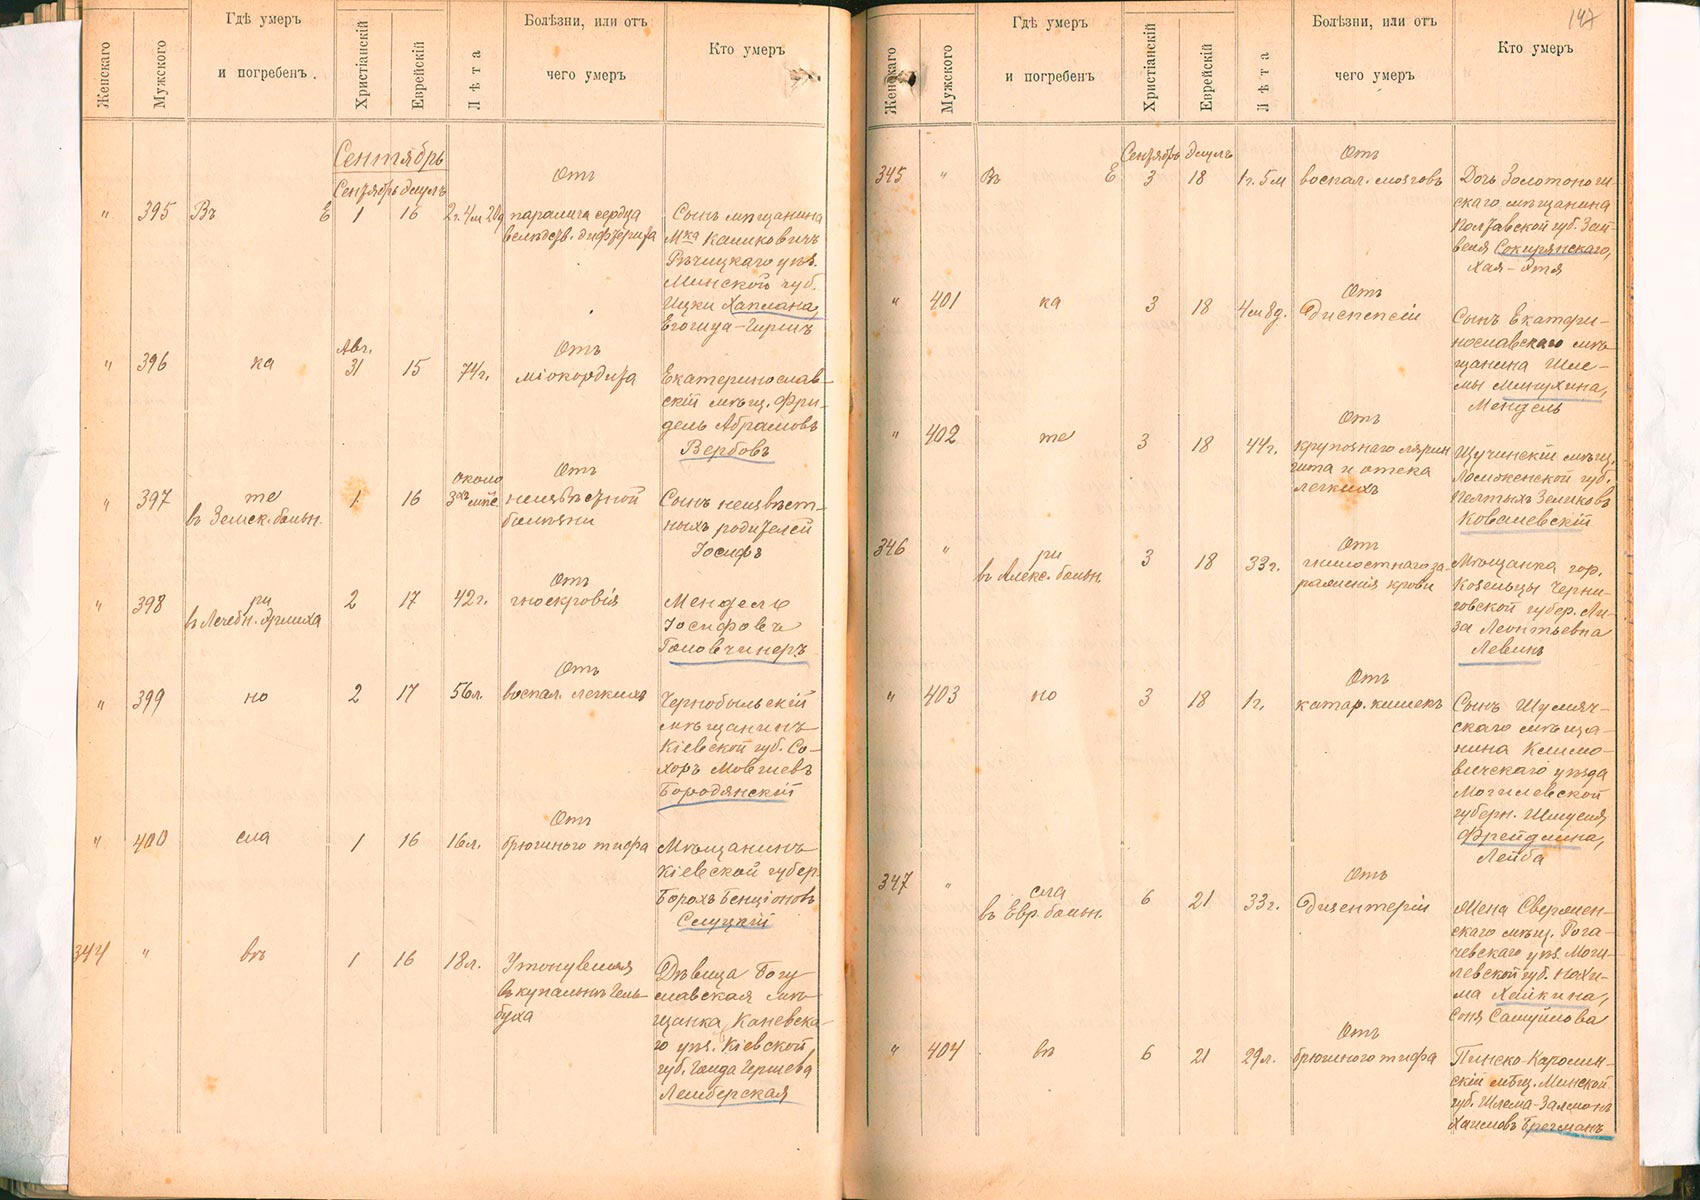 Женскаго
Мужского
Гдѣ умеръ
и погребенъ.
Христіанскій
Еврейскій
Лѣта
Болѣзни, или отъ
чего умеръ
Кто умеръ
Сентябрь
Сентябрь Элулъ
"
395
Въ Е
1
16
2г.4м 20д
Отъ
паралича сердца
вслѣдств. дифтерита
Сынъ мѣщанина
Мка Калиновичъ
Рѣчицкаго уѣз.
Минской губ.
Ицки Каплана,
"
396
ка
Авг.
31
15
74г.
Отъ
міокордита
Екатеринослав-
скій мѣщ. Фри-
дель Абрамовъ
Вербовъ
"
397
те
въ Земск. больн.
1
16
около
3хъ мѣс.
Отъ
неизвѣстной
болѣзни
Сынъ неизвѣст-
ныхъ родителей
Іосифъ
"
398
ри
въ Лечебн.
2
17
42г.
Отъ
гноекровія
Мендель
Іосифовъ
Головчинеръ
"
399
но
2
17
56л.
Отъ
воспал. легкихъ
Чернобыльскій
мѣщанинъ
Кіевской губ. Со-
хоръ Мовшевъ
Бородянскій
"
400
сла
1
16
16л.
Отъ
брюшного тифа
Мѣщанинъ
Кіевской губер.
Борохъ Бенціоновъ
Слуцкій
344
"
въ
1
16
18л.
Утонувшая
въ купальнѣ Гель-
буха
Дѣвица Богу-
славская мѣ-
щанка, Каневска-
го уѣз. Кіевской
губ. Голда Гершева
Лемберская
147
Женскаго
Мужского
Гдѣ умеръ
и погребенъ
Христіанскій
Еврейскій
Лѣта
Болѣзни, или отъ
чего умеръ
Кто умеръ
Сентябрь Элулъ
345
"
Въ Е
3
18
1г. 5м
Отъ
воспал. мозговъ
Дочь Золотонош-
скаго мѣщанина
Полтавской губ. Зай-
веля Сокирянскаго,
Хая-Этя
"
401
ка
3
18
4м 8д.
Отъ
Диспепсіи
Сынъ Екатери-
нославскаго мѣ-
щанина Шле-
мы Минухина,
Мендель
"
402
те
3
18
44г.
Отъ
крупознаго лярин
гита и отека
легкихъ
Щучинскій мѣщ.
Ломженской губ.
Зеликовъ
Ковалевскій
346
"
ри
въ Алекс. больн.
3
18
33г.
Отъ
гнилостнаго за-
раженія крови
Мѣщанка гор.
Козельцы Черни-
говской губер. Ли-
за Леонтьевна
Левинъ
"
403
но
3
18
1г.
Отъ
катар. кишекъ
Сынъ Шумяч-
скаго мѣща-
нина Климо-
вичскаго уѣзда
Могилевской
губерн. Шмуеля
Фрейдлина,
Лейба
347
"
сла
въ Евр. больн.
6
21
33г.
Отъ
Дизентеріи
Жена Свержен-
скаго мѣщ. Рога-
чевскаго уѣз. Моги-
левской губ. Нохи-
ма Хайкина,
Соня Самуйлова
"
404
въ
6
21
29л.
Отъ
брюшного тифа
Пинско-Каролин-
скій мѣщ. Минской
губ. Шлема-Залмонъ
Хаимовъ Брегманъ